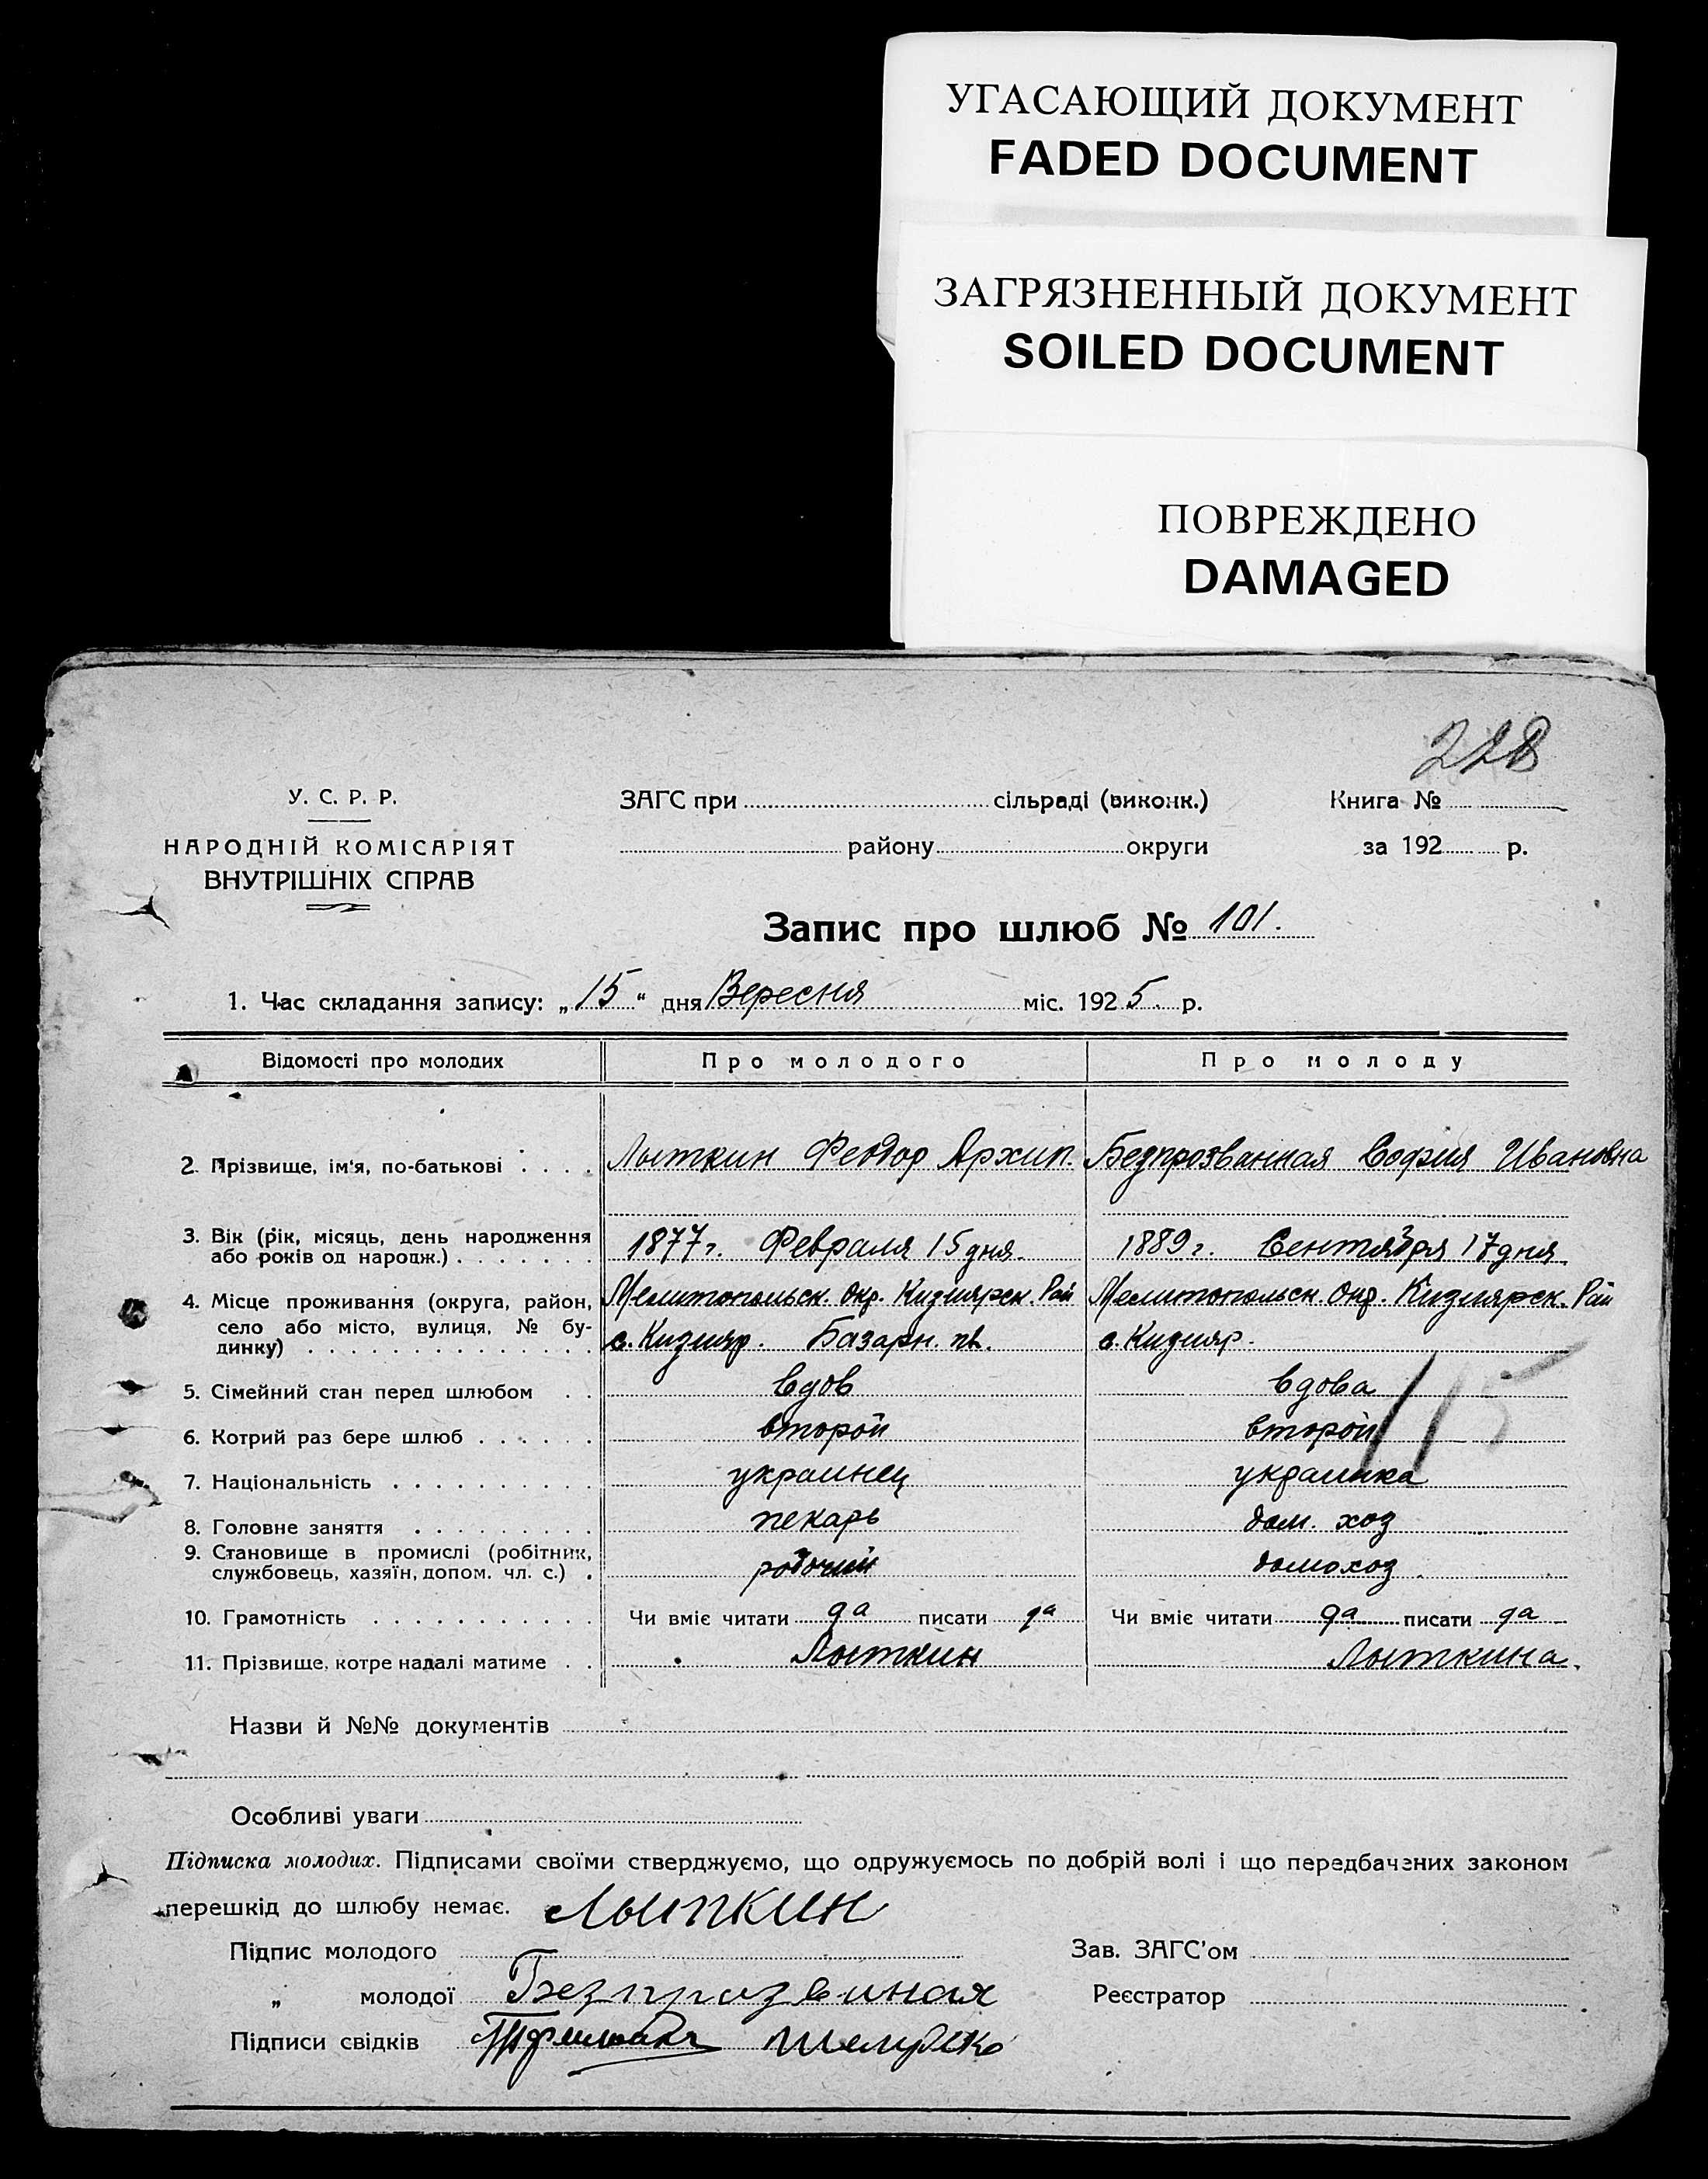 УГАСАЮЩИЙ ДОКУМЕНТ
FADED DOCUMENT
ЗАГРЯЗНЕННЫЙ ДОКУМЕНТ
SOILED DOCUMENT
ПОВРЕЖДЕНО
DAMAGED
228
У. С. Р. Р.
НАРОДНІЙ КОМІСАРІЯТ
ВНУТРІШНІХ СПРАВ
ЗАГС при сільраді (виконк.) Книга №
району округи за 192 р.
Запис про шлюб № 101.
1. Час складання запису: „15“ дня Вересня міс. 1925. р.
Відомості про молодих Про молодого Про молоду
2. Прізвище, ім'я, по-батькові Лыткин Феодор Архип. Безпрозванная София Ивановна
3. Вік (рік, місяць, день народження
або років од народж.) 1877 г. Февраля 15 дня. 1889 г. Сентября 17 дня
4. Місце проживання (округа, район, Мелитопольск. Окр. Кизиярск. Рай Мелитопольск. Окр. Кизиярск. Рай
село або місто, вулиця, № бу-
динку) с. Кизияр. Базарн. пл. с. Кизияр.
5. Сімейний стан перед шлюбом вдов вдова
115
6. Котрий раз бере шлюб второй второй
7. Національність украинец украинка
8. Головне заняття пекарь дом. хоз
9. Становище в промислі (робітник,
службовець, хазяїн, допом. чл. с.) робочий домохоз
10. Грамотність Чи вміє читати да писати да Чи вміє читати да писати да
11. Прізвище, котре надалі матиме Лыткин Лыткина.
Назви й №№ документів
Особливі уваги
Підписка молодих. Підписами своїми стверджуємо, що одружуємось по добрій волі і що передбачених законом
перешкід до шлюбу немає. Лыткин
Підпис молодого Зав. ЗАГС'ом
„ молодої Безпризвиная Реєстратор
Підписи свідків